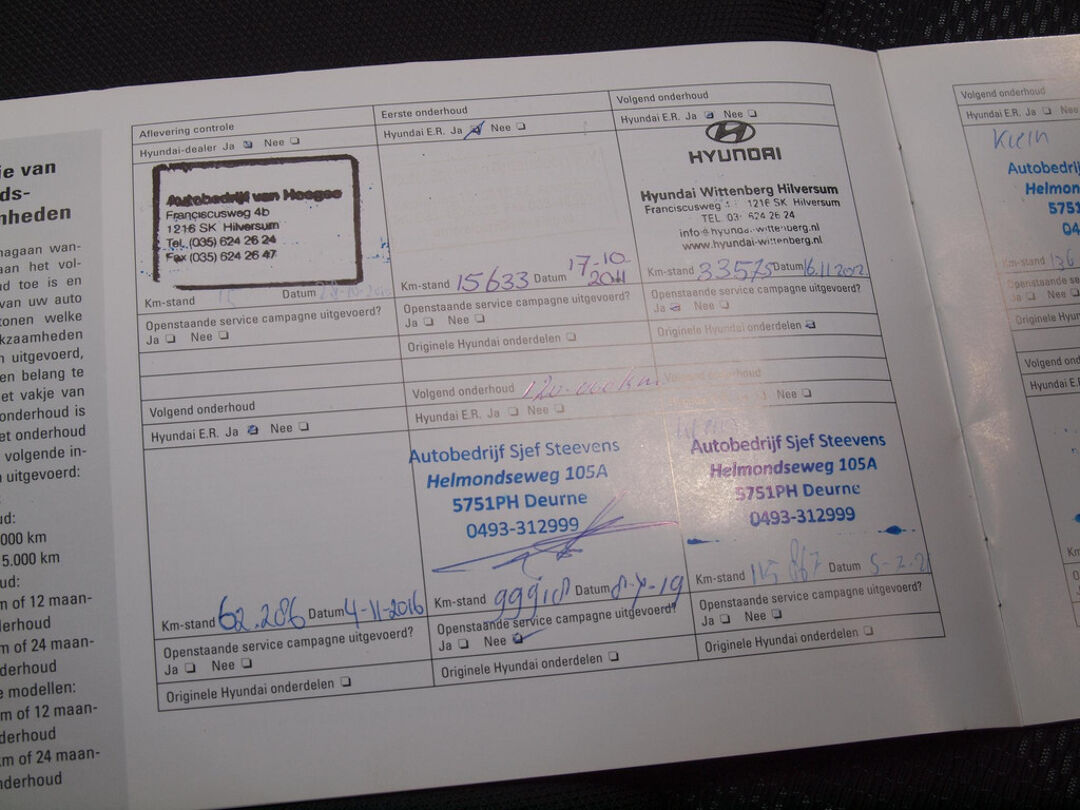 je van
ds-
nheden
nagaan wan-
aan het vol-
ud toe is en
van uw auto
tonen welke
kzaamheden
n uitgevoerd,
en belang te
et vakje van
onderhoud is
et onderhoud
volgende in-
n uitgevoerd:
ud:
000 km
5.000 km
oud:
m of 12 maan-
derhoud
m of 24 maan-
nderhoud
e modellen:
m of 12 maan-
derhoud
km of 24 maan-
nderhoud
Aflevering controle
Hyundai-dealer Ja Nee
Autobedrijf van Hooges
Franciscusweg 4b
1216 SK Hilversum
Tel. (035) 624 26 24
Fax (035) 624 26 47
Km-stand Datum
Openstaande service campagne uitgevoerd?
Ja Nee
Eerste onderhoud
Hyundai E.R. Ja Nee
Km-stand 15633 Datum 17-10-2011
Openstaande service campagne uitgevoerd?
Ja Nee
Originele Hyundai onderdelen
Volgend onderhoud
Hyundai E.R. Ja Nee
HYUNDAI
Hyundai Wittenberg Hilversum
Franciscusweg 1216 SK Hilversum
TEL. 624 26 24
info@hyundai-wittenberg.nl
www.hyundai-wittenberg.nl
Km-stand 33575 Datum 16.11.2012
Openstaande service campagne uitgevoerd?
Ja Nee
Originele Hyundai onderdelen
Volgend onderhoud
Hyundai E.R. Ja Nee
Km-stand 62.286 Datum 4-11-2016
Openstaande service campagne uitgevoerd?
Ja Nee
Originele Hyundai onderdelen
Volgend onderhoud 120.000km
Hyundai E.R. Ja Nee
Autobedrijf Sjef Steevens
Helmondseweg 105A
5751PH Deurne
0493-312999
Km-stand Datum
Openstaande service campagne uitgevoerd?
Ja Nee
Originele Hyundai onderdelen
Volgend onderhoud
Nee
Autobedrijf Sjef Steevens
Helmondseweg 105A
5751PH Deurne
0493-312999
Km-stand Datum
Openstaande service campagne uitgevoerd?
Ja Nee
Originele Hyundai onderdelen
Volgend onderhoud
Hyundai E.R. Ja Nee
Klein
Autobedrij
Helmo
575
04
Km-stand 136
Openstaande
Ja Nee
Originele Hyund
Volgend onderho
Hyundai E.R.
Km-